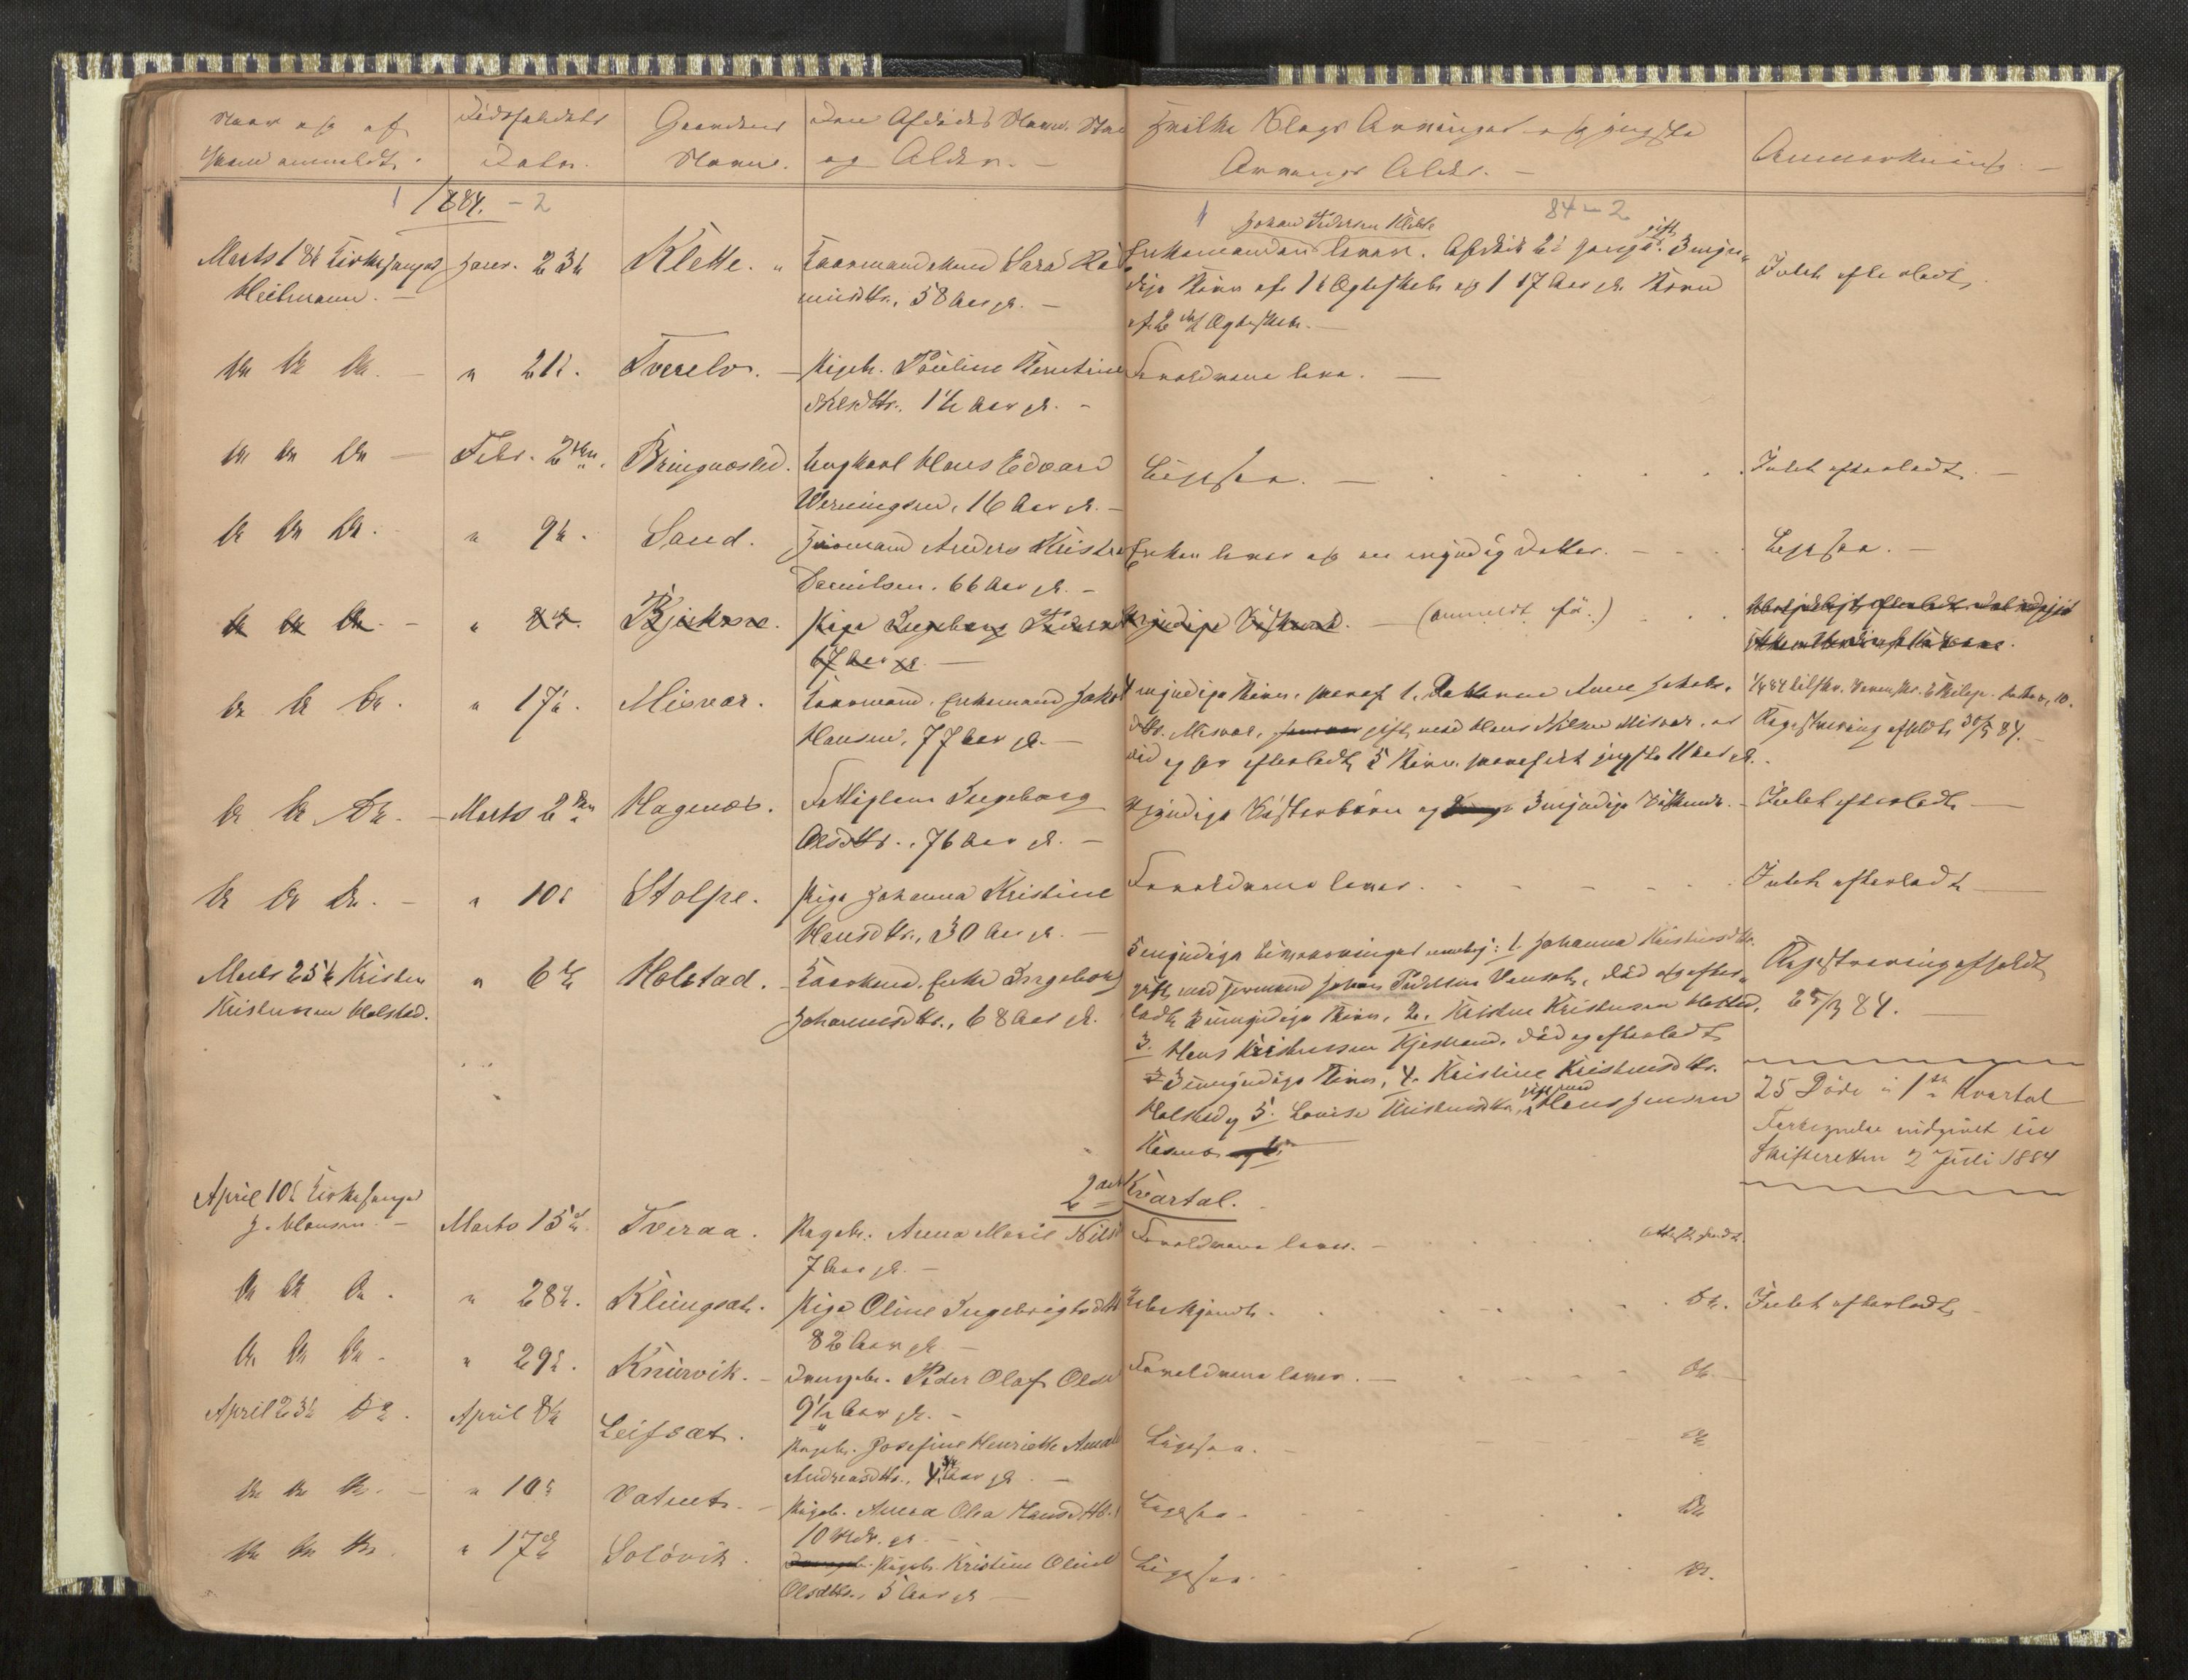 Naar og af hvem anmeldt.
Dødsfaldets Dato.
Gaardens Navn.
Den Afdødes Navn, Stand og Alder. —
Hvilke Slags Arvinger og yngste Arvings Alder. —
Anmærkning. —
1884. – 2
84 – 2
Marts 18de Kirkesanger
Heitmann. —
Janr. 23de
Klette.
Kaarmandskone Sara Ras
musdttr., 58 Aar gl. —
Johan Pedersen Klette
Enkemanden lever. Afdøde 2de gange gift. 3 myn
dige Børn af 1ste Ægteskab og 1 17 Aar gl. Barn
af 2det Ægteskab. —
Intet efterladt.
Do Do Do. —
" 21de.
Tverelv. —
Pigeb. Pauline Berntine
1½ Aar gl. —
Forældrene leve. —
Do Do Do —
Febr. 2den.
Bringnæslid.
Ungkarl Hans Edvard
Werningsen, 16 Aar gl. —
Ligesaa. —
Intet efterladt. —
Do Do Do. —
" 9de.
Sand.
Husmand Anders Kristia
Danielsen, 66 Aar gl. —
Enken lever og en myndig Datter. —
Ligesaa. —
Do Do Do. —
" 8de.
Pige Ingeborg Pedersd
67 Aar gl. —
Myndige Søskende. — (anmeldt før.)
Do Do Do. —
" 17de.
Misvær.
Kaarmand, Enkemand Jakob
Hansen, 77 Aar gl. —
4 myndige Børn, hvoraf 1, Datteren Anne Jakobs.
dtr. Misvær, gift med Hans Nilsen Misvær, er
død og har efterladt 5 Børn, hvoraf det yngste 11 Aar gl.
Registrering afholdt 30/5 84. —
Do Do Do. —
Marts 2den
Hagenæs.
Fattiglem Ingeborg
Olsdttr., 76 Aar gl. —
Myndige Søsterbørn og 3 myndige Søskende. —
Intet efterladt —
Do Do Do. —
" 10de
Stolpe.
Pige Johanna Kristine
Hansdttr., 30 Aar gl. —
Forældrene lever.
Intet efterladt —
Marts 25de Kristen
Kristensen Holstad.
" 6te
Holstad.
Kaarkone, Enke Ingeborg
Johannesdttr., 68 Aar gl.
5 myndige Livsarvinger nemlig: 1. Johanna Kristensdttr.
gift med Husmand Johan Pedersen Vensæt, død og efter
ladt umyndige Børn, 2. Kristen Kristensen Holstad,
3. Hans Kristensen død og efterladt
3 umyndige Børn, 4. Kristine Kristensdttr.
Holstad og 5. Lovise Kristensdttr., gift med Hans Jensen
Registrering afholdt
25/3 84. —
25 Døde i 1ste Kvartal
Fortegnelse indgivet til
Skifteretten 2 Juli 1884
2det Kvartal.
April 10de Kirkesanger
J. Hansen. —
Marts 15de.
Tveraa.
Pigeb. Anna Marie Nilsd
7 Aar gl. —
Forældrene lever. —
Attest sendt.
Do Do Do.
" 28de.
Klungsæt.
Pige Oline Ingebrigtsdtt
82 Aar gl. —
Ubekjendt.
Do.
Intet efterladt —
Do Do Do. —
" 29de.
Knurvik. —
Drengeb. Peder Olaf Olse
9½ Aar gl. —
Forældrene lever. —
Do.
April 23de Do.
April 8de
Leifsæt.
Pigeb. Josefine Henriette Amal
Andreasdttr., 4 Aar gl. —
Ligesaa. —
Do
Do Do Do. —
" 10de
Vatnet. —
Pigeb. Anna Olea Hansdttr.
10 Mdr. gl. —
Ligesaa.
Do
Do Do Do.
" 17de
Solövik.
Pigeb. Kristine Oline
Olsdttr., 5 Aar gl. —
Ligesaa.
Do.